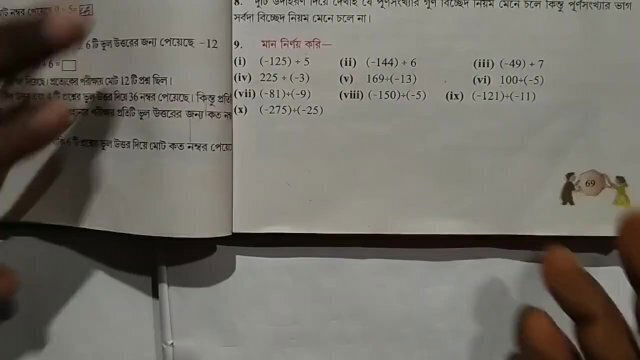 নম্বর পেয়েছে
6 টি ভুল উত্তরের জন্য পেয়েছে −12
প্রত্যেকের পরীক্ষায় মোট 12 টি প্রশ্ন ছিল।
ভুল উত্তর দিয়ে 36 নম্বর পেয়েছে। কিন্তু প্রতি
প্রতিটি ভুল উত্তরের জন্য কত
ভুল উত্তর দিয়ে মোট কত নম্বর পেয়ে
8. দুটি উদাহরণ দিয়ে দেখাই যে পূর্ণসংখ্যার গুণ বিচ্ছেদ নিয়ম মেনে চলে কিন্তু পূর্ণসংখ্যার ভাগ
সর্বদা বিচ্ছেদ নিয়ম মেনে চলে না।
9. মান নির্ণয় করি—
(i) (-125) ÷ 5 (ii) (-144) ÷ 6 (iii) (-49) ÷ 7
(iv) 225 ÷ (-3) (v) 169÷(-13) (vi) 100÷(-5)
(vii) (-81)÷(-9) (viii) (-150)÷(-5) (ix) (-121)÷(-11)
(x) (-275)÷(-25)
69